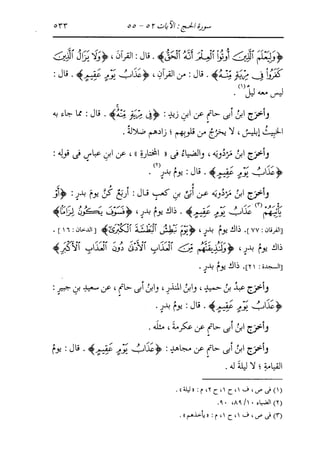 سورة الحج : الآيات ٥٤ - ٥٥ ٥٣٣
﴿وليعلم الذين أوتوا العلم أنه الحق﴾ . قال : القرآن ، ﴿ولا يزال الذين
كفروا في مرية منه﴾ . قال : من القرآن ، ﴿عذاب يوم عقيم﴾ . قال :
ليس معه ليل(١) .
وأخرج ابن أبي حاتم عن ابن زيد : ﴿في مرية منه﴾ . قال : مما جاء به
الخبيث إبليس ، لا يخرج من قلوبهم ؛ زادهم ضلالة .
وأخرج ابن مردويه ، والضياء في « المختارة » ، عن ابن عباس في قوله :
﴿عذاب يوم عقيم﴾ . قال : يوم بدر(٢) .
وأخرج ابن مردويه عن أبي بن كعب قال : أربع كن يوم بدر : ﴿أو
يأتيهم(٣) عذاب يوم عقيم﴾ . ذاك يوم بدر ، ﴿فسوف يكون لزاما﴾
[الفرقان : ٧٧] . ذاك يوم بدر ، ﴿يوم نبطش البطشة الكبرى﴾ [الدخان : ١٦] .
ذاك يوم بدر ، ﴿ولنذيقنهم من العذاب الأدنى دون العذاب الأكبر﴾
[السجدة : ٢١] . ذاك يوم بدر .
وأخرج عبد بن حميد ، وابن المنذر ، وابن أبي حاتم ، عن سعيد بن جبير :
﴿عذاب يوم عقيم﴾ . قال : يوم بدر .
وأخرج ابن أبي حاتم عن عكرمة ، مثله .
وأخرج ابن أبي حاتم عن مجاهد : ﴿عذاب يوم عقيم﴾ . قال : يوم
القيامة ؛ لا ليلة له .
(١) في ص ، ف ١ ، ح ١ ، ح ٢ ، م : « ليلة » .
(٢) الضياء ١٠/ ٨٩، ٩٠ .
(٣) في ص ، ف ١ ، ح ١ ، م : « يأخذهم » .